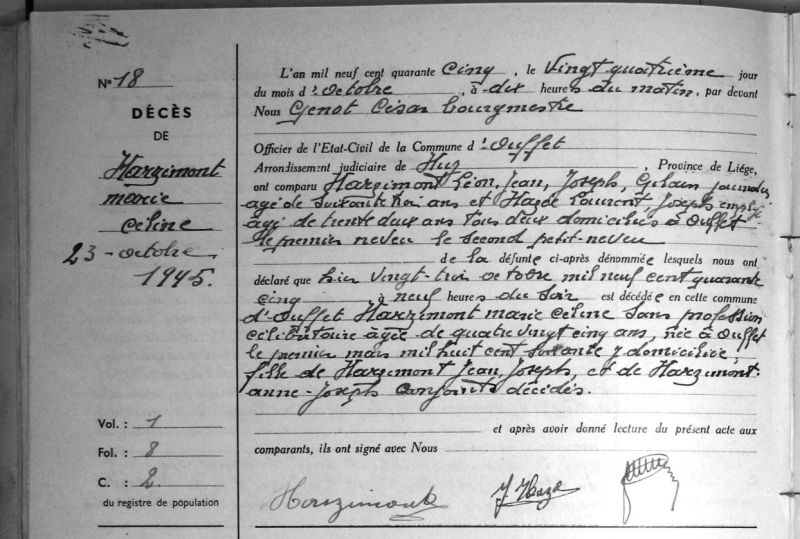 N° 18
DÉCÈS
DE
Harzimont
marie
Céline
23 - octobre
1945.
Vol. : 1
Fol. : 8
C. : 2
du registre de population
L'an mil neuf cent quarante Cinq, le Vingt quatrième jour
du mois d'octobre, à dix heures du matin, par devant
Nous Genot César bourgmestre
Officier de l'Etat-Civil de la Commune d'Ouffet
Arrondissement judiciaire de Huy, Province de Liége,
ont comparu Harzimont Léon, Jean, Joseph, Gilain journalier
agé de soixante trois ans et Hazée Laurent Joseph employé
agé de trente deux ans tous deux domiciliés à Ouffet
le premier neveu le second petit-neveu
de la défunte ci-après dénommée lesquels nous ont
déclaré que hier vingt-trois octobre mil neuf cent quarante
cinq à neuf heures du soir est décédée en cette commune
d'Ouffet Harzimont marie Céline sans profession
célibataire âgée de quatre vingt cinq ans, née à Ouffet
le premier mars mil huit cent soixante y domiciliée,
fille de Harzimont Jean, Joseph, et de Harzimont
anne-Joseph conjoints décédés.
et après avoir donné lecture du présent acte aux
comparants, ils ont signé avec Nous
Harzimont J Hazé